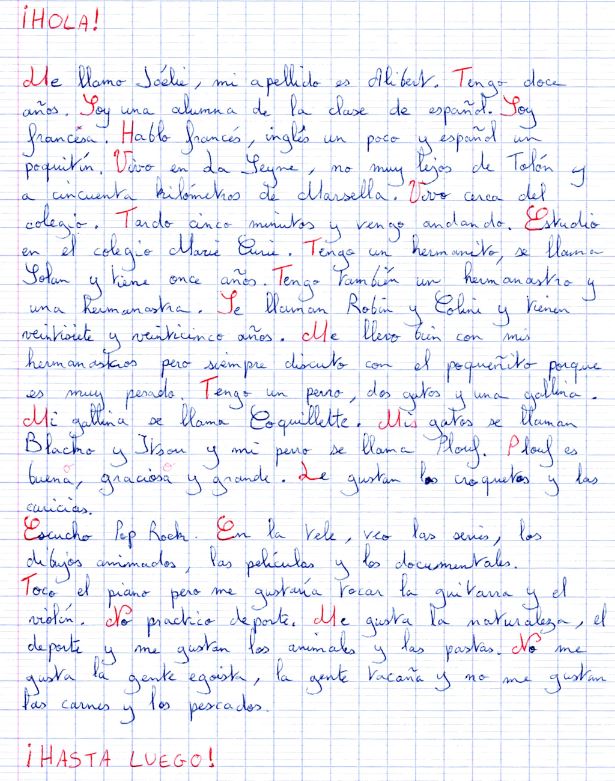 ¡HOLA!
Me llamo Joélie, mi apellido es Alibert. Tengo doce
años. Soy una alumna de la clase de español. Soy
francesa. Hablo francés, inglés un poco y español un
poquitín. Vivo en La Seyne, no muy lejos de Tolón y
a cincuenta kilómetros de Marsella. Vivo cerca del
colegio. Tardo cinco minutos y vengo andando. Estudio
en el colegio Marie Curie. Tengo un hermanito, se llama
Solan y tiene once años. Tengo también un hermanastro y
una hermanastra. Se llaman Robin y Coline y tienen
veintisiete y veinticinco años. Me llevo bien con mis
hermanastros pero siempre discuto con el pequeñito porque
es muy pesado. Tengo un perro, dos gatos y una gallina.
Mi gallina se llama Coquillette. Mis gatos se llaman
Blacko y Itsou y mi perro se llama Plouf. Plouf es
buena, graciosa y grande. Le gustan las croquetas y las
caricias.
Escucho Pop Rock. En la tele, veo las series, los
dibujos animados, las películas y los documentales.
Toco el piano pero me gustaría tocar la guitarra y el
violín. No practico deporte. Me gusta la naturaleza, el
deporte y me gustan los animales y las pastas. No me
gusta la gente egoista, la gente tacaña y no me gustan
las carnes y los pescados.
¡HASTA LUEGO!